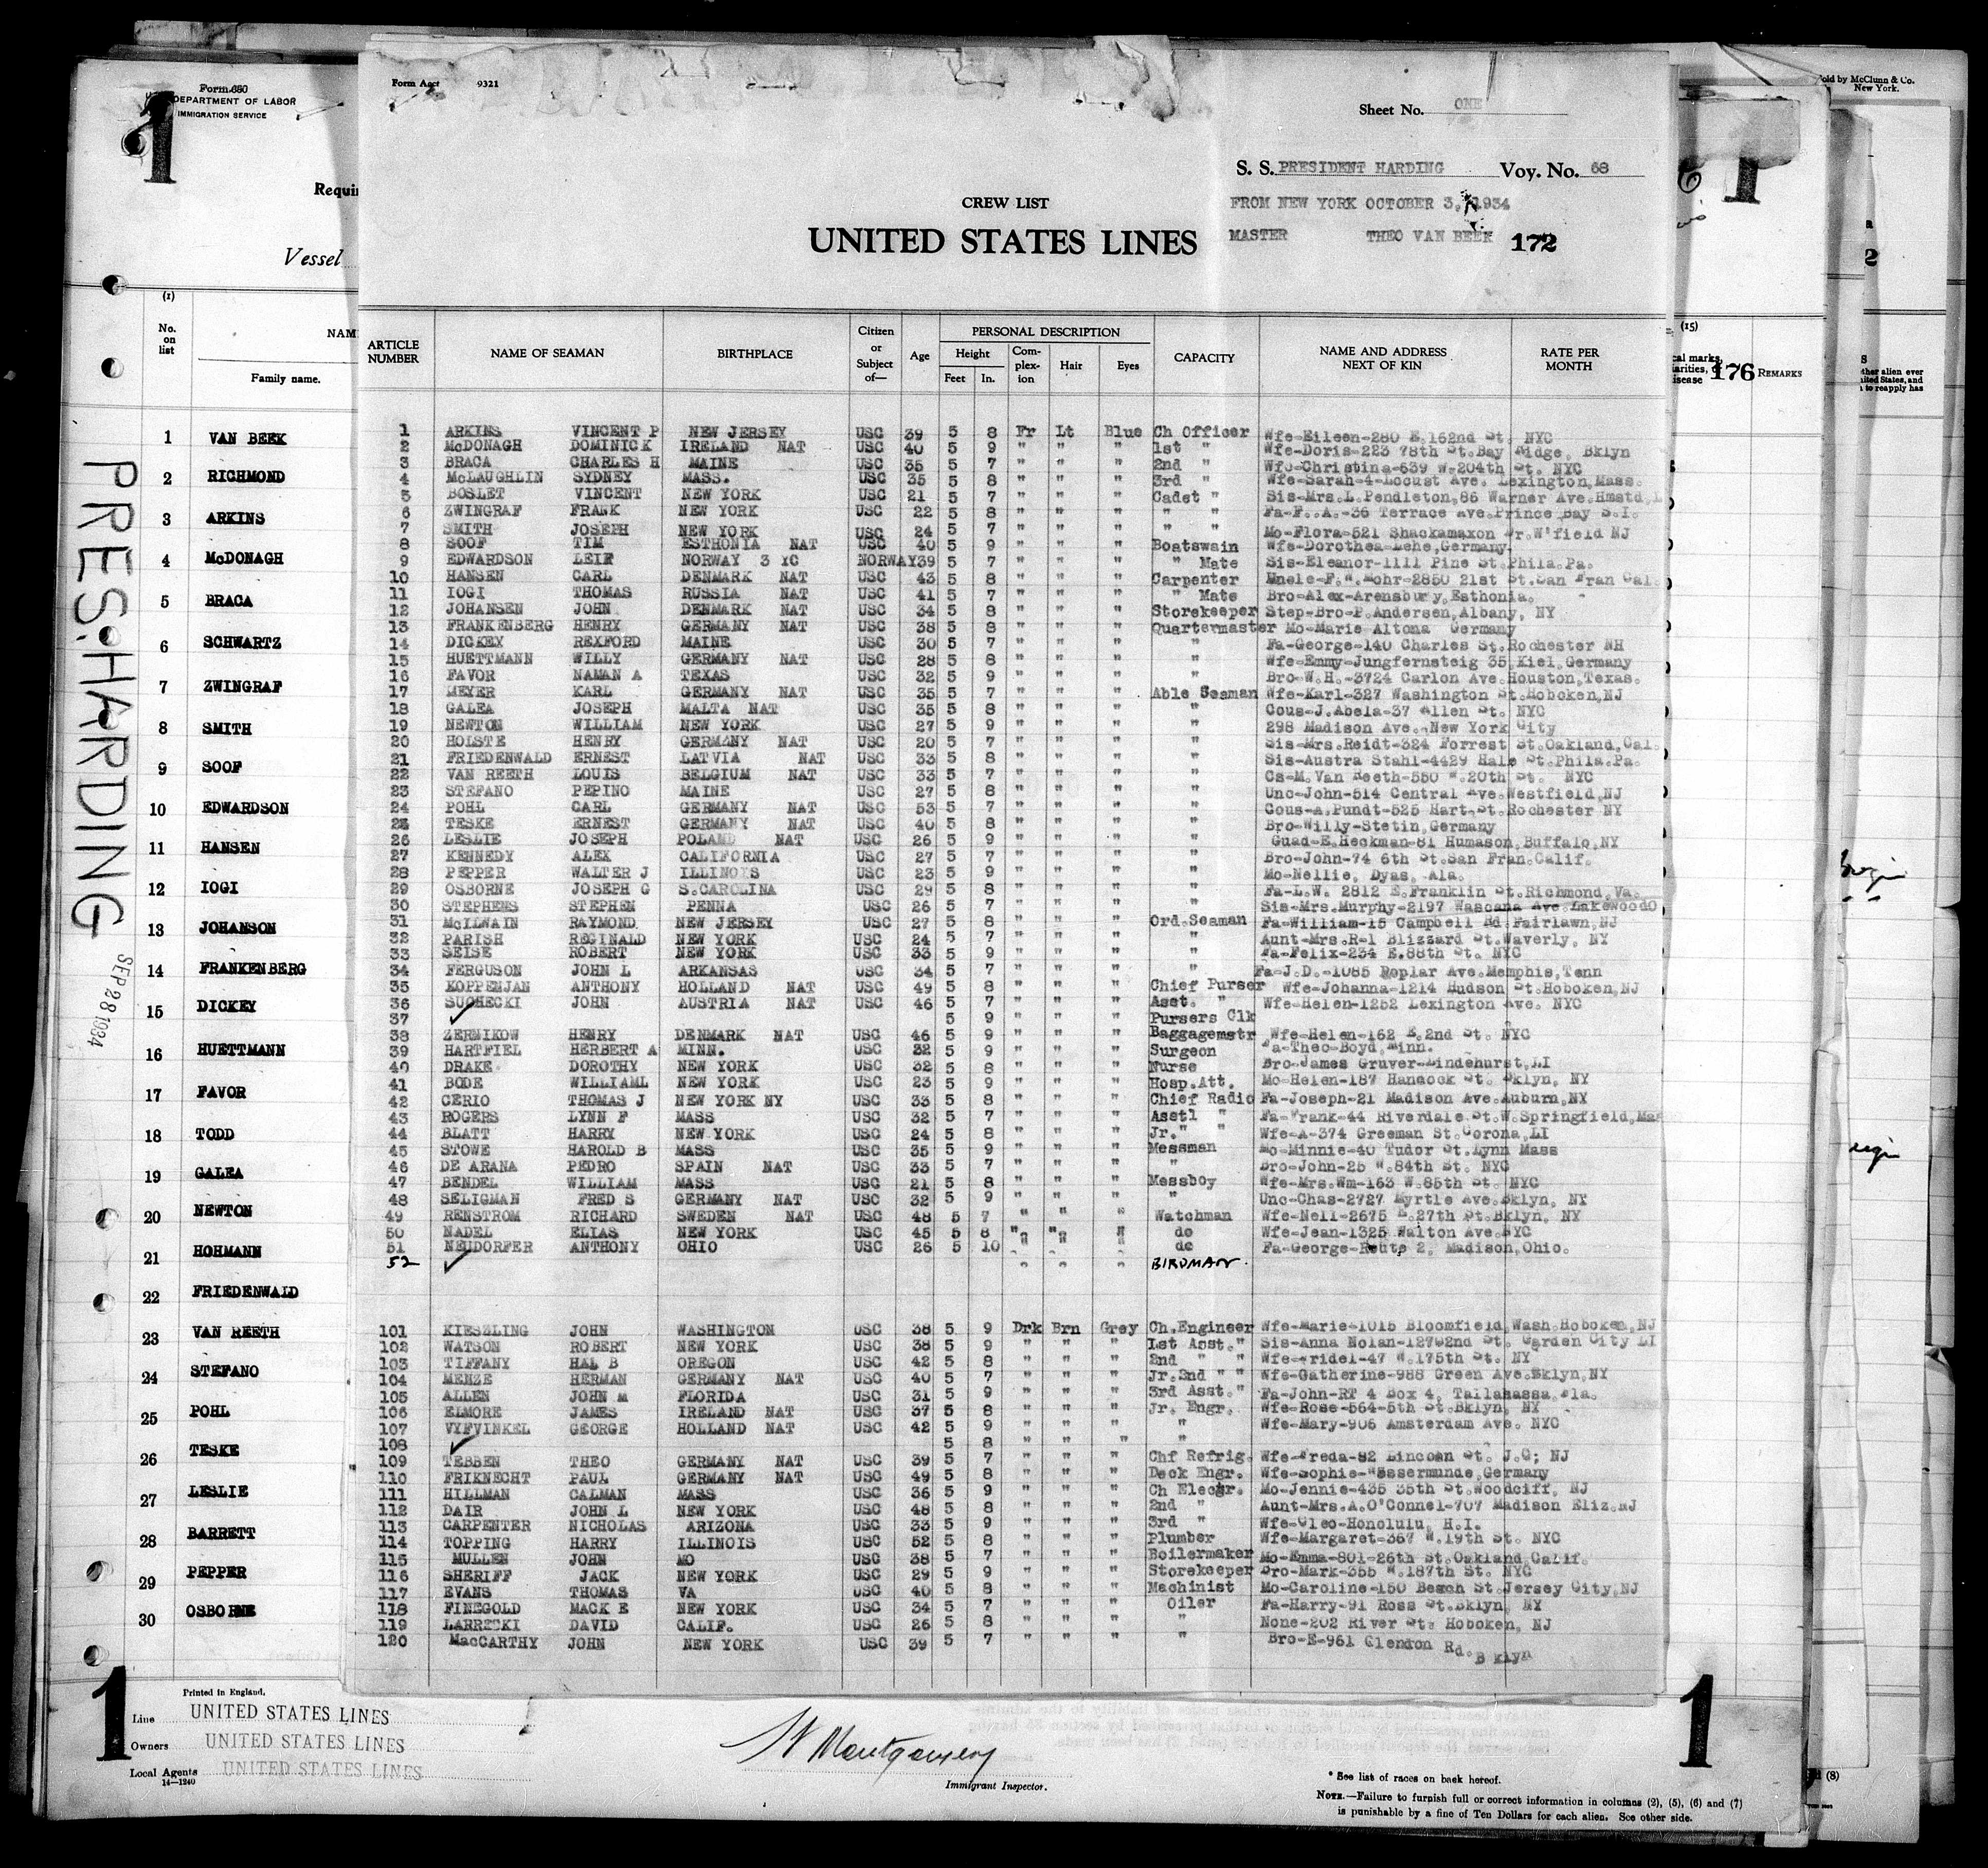 Form Acct 9321
Sheet No. ONE
S. S. PRESIDENT HARDING Voy. No. 68
CREW LIST
FROM NEW YORK OCTOBER 3, 1934
UNITED STATES LINES
MASTER THEO VAN BEEK 172
ARTICLE NUMBER NAME OF SEAMAN BIRTHPLACE Citizen or Subject of— Age PERSONAL DESCRIPTION Height Feet In. Complexion Hair Eyes CAPACITY NAME AND ADDRESS NEXT OF KIN RATE PER MONTH
1 ARKINS VINCENT P NEW JERSEY USC 39 5 8 Fr Lt Blue Ch Officer Wfe-Eileen-280 E.162nd St. NYC
2 McDONAGH DOMINICK IRELAND NAT USC 40 5 9 " " " 1st " Wfe-Doris-223 78th St.Bay Ridge, Bklyn
3 BRACA CHARLES H MAINE USC 35 5 7 " " " 2nd " Wfe-Christina-539 W.204th St. NYC
4 McLAUGHLIN SYDNEY MASS. USC 35 5 8 " " " 3rd " Wfe-Sarah-4-Locust Ave. Lexington,Mass.
5 BOSLET VINCENT NEW YORK USC 21 5 7 " " " Cadet " Sis-Mrs.L.Pendleton,86 Warner Ave.Hmstd,L
6 ZWINGRAF FRANK NEW YORK USC 22 5 8 " " " " " Fa-F..A.-36 Terrace Ave.Prince Bay S.I.
7 SMITH JOSEPH NEW YORK USC 24 5 7 " " " " " Mo-Flora-521 Shackamaxon Dr.W'field NJ
8 SOOF TIM ESTHONIA NAT USC 40 5 9 " " " Boatswain Wfe-Dorothea-Lehe,Germany
9 EDWARDSON LEIF NORWAY 3 YC NORWAY39 5 7 " " " " Mate Sis-Eleanor-1111 Pine St.Phila.Pa.
10 HANSEN CARL DENMARK NAT USC 43 5 8 " " " Carpenter Unele-F.W.Mohr-2850 21st St.San Fran Cal.
11 IOGI THOMAS RUSSIA NAT USC 41 5 7 " " " " Mate Bro-Alex-Arensbury,Esthonia.
12 JOHANSEN JOHN DENMARK NAT USC 34 5 8 " " " Storekeeper Step-Bro-P.Andersen,Albany, NY
13 FRANKENBERG HENRY GERMANY NAT USC 38 5 8 " " " Quartermaster Mo-Marie Altona Germany
14 DICKEY REXFORD MAINE USC 30 5 7 " " " " Fa-George-140 Charles St.Rochester NH
15 HUETTMANN WILLY GERMANY NAT USC 28 5 8 " " " " Wfe-Emmy-Jungfernsteig 35,Kiel,Germany
16 FAVOR NAMAN A TEXAS USC 32 5 9 " " " " Bro-W.H.-3724 Carlon Ave.Houston,Texas.
17 MEYER KARL GERMANY NAT USC 35 5 7 " " " Able Seaman Wfe-Karl-327 Washington St.Hoboken,NJ
18 GALEA JOSEPH MALTA NAT USC 35 5 8 " " " " Cous-J.Abela-37 Allen St. NYC
19 NEWTON WILLIAM NEW YORK USC 27 5 9 " " " " 298 Madison Ave.,New York City
20 HOLSTE HENRY GERMANY NAT USC 20 5 7 " " " " Sis-Mrs.Reidt-324 Forrest St.Oakland,Cal.
21 FRIEDENWALD ERNEST LATVIA NAT USC 33 5 8 " " " " Sis-Austra Stahl-4429 Hale St.Phila.Pa.
22 VAN REETH LOUIS BELGIUM NAT USC 33 5 7 " " " " Cs-M.Van Reeth-550 W.20th St. NYC
23 STEFANO PEPINO MAINE USC 27 5 8 " " " " Unc-John-514 Central Ave.Westfield,NJ
24 POHL CARL GERMANY NAT USC 53 5 7 " " " " Cous-A.Pundt-525 Hart.St.Rochester NY
25 TESKE ERNEST GERMANY NAT USC 40 5 8 " " " " Bro-Willy-Stetin,Germany
26 LESLIE JOSEPH POLAND NAT USC 26 5 9 " " " " Guad-E.Heckman-81 Humason,Buffalo,NY
27 KENNEDY ALEX CALIFORNIA USC 27 5 7 " " " " Bro-John-74 6th St.San Fran.Calif.
28 PEPPER WALTER J ILLINOIS USC 23 5 9 " " " " Mo-Nellie, Dyas, Ala.
29 OSBORNE JOSEPH G S.CAROLINA USC 29 5 8 " " " " Fa-L.W. 2812 E.Franklin St.Richmond,Va.
30 STEPHENS STEPHEN PENNA USC 26 5 7 " " " " Sis-Mrs.Murphy-2197 Wascana Ave.LakewoodO
31 McILWAIN RAYMOND NEW JERSEY USC 27 5 8 " " " Ord.Seaman Fa-William-15 Campbell Rd.Fairlawn,NJ
32 PARISH REGINALD NEW YORK USC 24 5 7 " " " " Aunt-Mrs.R-1 Blizzard St.Waverly, NY
33 SEISE ROBERT NEW YORK USC 33 5 9 " " " " Fa-Felix-234 E.88th St. NYC
34 FERGUSON JOHN L ARKANSAS USC 34 5 7 " " " " Fa-J.D.-1085 Poplar Ave.Memphis,Tenn
35 KOPPENJAN ANTHONY HOLLAND NAT USC 49 5 8 " " " Chief Purser Wfe-Johanna-1214 Hudson St.Hoboken,NJ
36 SUCHECKI JOHN AUSTRIA NAT USC 46 5 7 " " " Asst. " Wfe-Helen-1252 Lexington Ave. NYC
37 ✓ 5 9 " " " Pursers Clk
38 ZERNIKOW HENRY DENMARK NAT USC 46 5 9 " " " Baggagemstr Wfe-Helen-162 E.2nd St. NYC
39 HARTFIEL HERBERT A MINN. USC 32 5 9 " " " Surgeon Fa-Theo-Boyd,Minn.
40 DRAKE DOROTHY NEW YORK USC 32 5 8 " " " Nurse Bro-James Gruver-Lindehurst,LI
41 BODE WILLIAML NEW YORK USC 23 5 9 " " " Hosp.Att. Mo-Helen-187 Hancock St. Bklyn, NY
42 CERIO THOMAS J NEW YORK NY USC 33 5 8 " " " Chief Radio Fa-Joseph-21 Madison Ave.Auburn,NY
43 ROGERS LYNN F MASS USC 32 5 7 " " " Asstl " Fa-Frank-44 Riverdale St.W.Springfield,Mas
44 BLATT HARRY NEW YORK USC 24 5 8 " " " Jr." " Wfe-A-374 Greeman St.Corona,LI
45 STOWE HAROLD B MASS USC 35 5 9 " " " Messman Mo-Minnie-40 Tudor St.Lynn Mass
46 DE ARANA PEDRO SPAIN NAT USC 33 5 7 " " " " Bro-John-25 W.84th St. NYC
47 BENDEL WILLIAM MASS USC 21 5 8 " " " Messboy Wfe-Mrs.Wm-163 W.85th St. NYC
48 SELIGMAN FRED S GERMANY NAT USC 32 5 9 " " " " Unc-Chas-2727 Myrtle Ave.Bklyn, NY
49 RENSTROM RICHARD SWEDEN NAT USC 48 5 7 " " " Watchman Wfe-Nell-2675 E.27th St.Bklyn, NY
50 NADEL ELIAS NEW YORK USC 45 5 8 " " " do Wfe-Jean-1325 Walton Ave.NYC
51 NEUDORFER ANTHONY OHIO USC 26 5 10 " " " do Fa-George-Route 2, Madison,Ohio.
52 ✓ " " " BIRDMAN.
101 KIESZLING JOHN WASHINGTON USC 38 5 9 Drk Brn Grey Ch.Engineer Wfe-Marie-1015 Bloomfield,Wash.Hoboken,NJ
102 WATSON ROBERT NEW YORK USC 38 5 9 " " " 1st Asst." Sis-Anna Nolan-12702nd St. Garden City LI
103 TIFFANY HAL B OREGON USC 42 5 8 " " " 2nd " " Wfe-Fridel-47 W.175th St. NY
104 MENZE HERMAN GERMANY NAT USC 40 5 7 " " " Jr.2nd " " Wfe-Catherine-988 Green Ave.Bklyn,NY
105 ALLEN JOHN M FLORIDA USC 31 5 9 " " " 3rd Asst." Fa-John-RT 4 Box 4, Tallahassa.Fla.
106 ELMORE JAMES IRELAND NAT USC 37 5 8 " " " Jr. Engr. Wfe-Rose-564-5th St.Bklyn, NY
107 VYFVINKEL GEORGE HOLLAND NAT USC 42 5 9 " " " " Wfe-Mary-906 Amsterdam Ave. NYC
108 ✓ 5 8 " " " "
109 TEBBEN THEO GERMANY NAT USC 39 5 7 " " " Chf Refrig. Wfe-Freda-82 Lincoan St. J.C; NJ
110 FRIKNECHT PAUL GERMANY NAT USC 49 5 8 " " " Deck Engr. Wfe-Sophie-Wessermunde,Germany
111 HILLMAN CALMAN MASS USC 36 5 9 " " " Ch Elecgr. Mo-Jennie-435 35th St.Woodciff, NJ
112 DAIR JOHN L NEW YORK USC 48 5 8 " " " 2nd " Aunt-Mrs.A.O'Connel-707 Madison Eliz.NJ
113 CARPENTER NICHOLAS ARIZONA USC 33 5 9 " " " 3rd " Wfe-Cleo-Honolulu, H.I.
114 TOPPING HARRY ILLINOIS USC 52 5 8 " " " Plumber Wfe-Margaret-367 W.19th St. NYC
115 MULLEN JOHN MO USC 38 5 7 " " " Boilermaker Mo-Emma-801-26th St.Oakland,Calif.
116 SHERIFF JACK NEW YORK USC 29 5 9 " " " Storekeeper Bro-Mark-355 W.187th St. NYC
117 EVANS THOMAS VA USC 40 5 8 " " " Machinist Mo-Caroline-150 Beach St.Jersey City,NJ
118 FINEGOLD MACK E NEW YORK USC 34 5 7 " " " Oiler Fa-Harry-91 Ross St.Bklyn, NY
119 LARRECKI DAVID CALIF. USC 26 5 8 " " " " None-202 River St. Hoboken, NJ
120 MacCARTHY JOHN NEW YORK USC 39 5 7 " " " " Bro-E-961 Glendon Rd. B klyn
Form 680
DEPARTMENT OF LABOR
IMMIGRATION SERVICE
1
Requi
Vessel
(1)
No. on list
NAM
Family name.
1 VAN BEEK
2 RICHMOND
3 ARKINS
4 McDONAGH
5 BRACA
6 SCHWARTZ
7 ZWINGRAF
8 SMITH
9 SOOF
10 EDWARDSON
11 HANSEN
12 IOGI
13 JOHANSON
14 FRANKENBERG
15 DICKEY
16 HUETTMANN
17 FAVOR
18 TODD
19 GALEA
20 NEWTON
21 HOHMANN
22 FRIEDENWALD
23 VAN REETH
24 STEFANO
25 POHL
26 TESKE
27 LESLIE
28 BARRETT
29 PEPPER
30 OSBORNE
PRES. HARDING
SEP 28 1934
1
Printed in England.
Line UNITED STATES LINES
Owners UNITED STATES LINES
Local Agents UNITED STATES LINES
14—1240
H Montgomery
Immigrant Inspector.
* See list of races on back hereof.
NOTE.—Failure to furnish full or correct information in columns (2), (5), (6) and (7)
is punishable by a fine of Ten Dollars for each alien. See other side.
1
1
(15)
176 REMARKS
Sold by McClunn & Co.
New York.
(8)